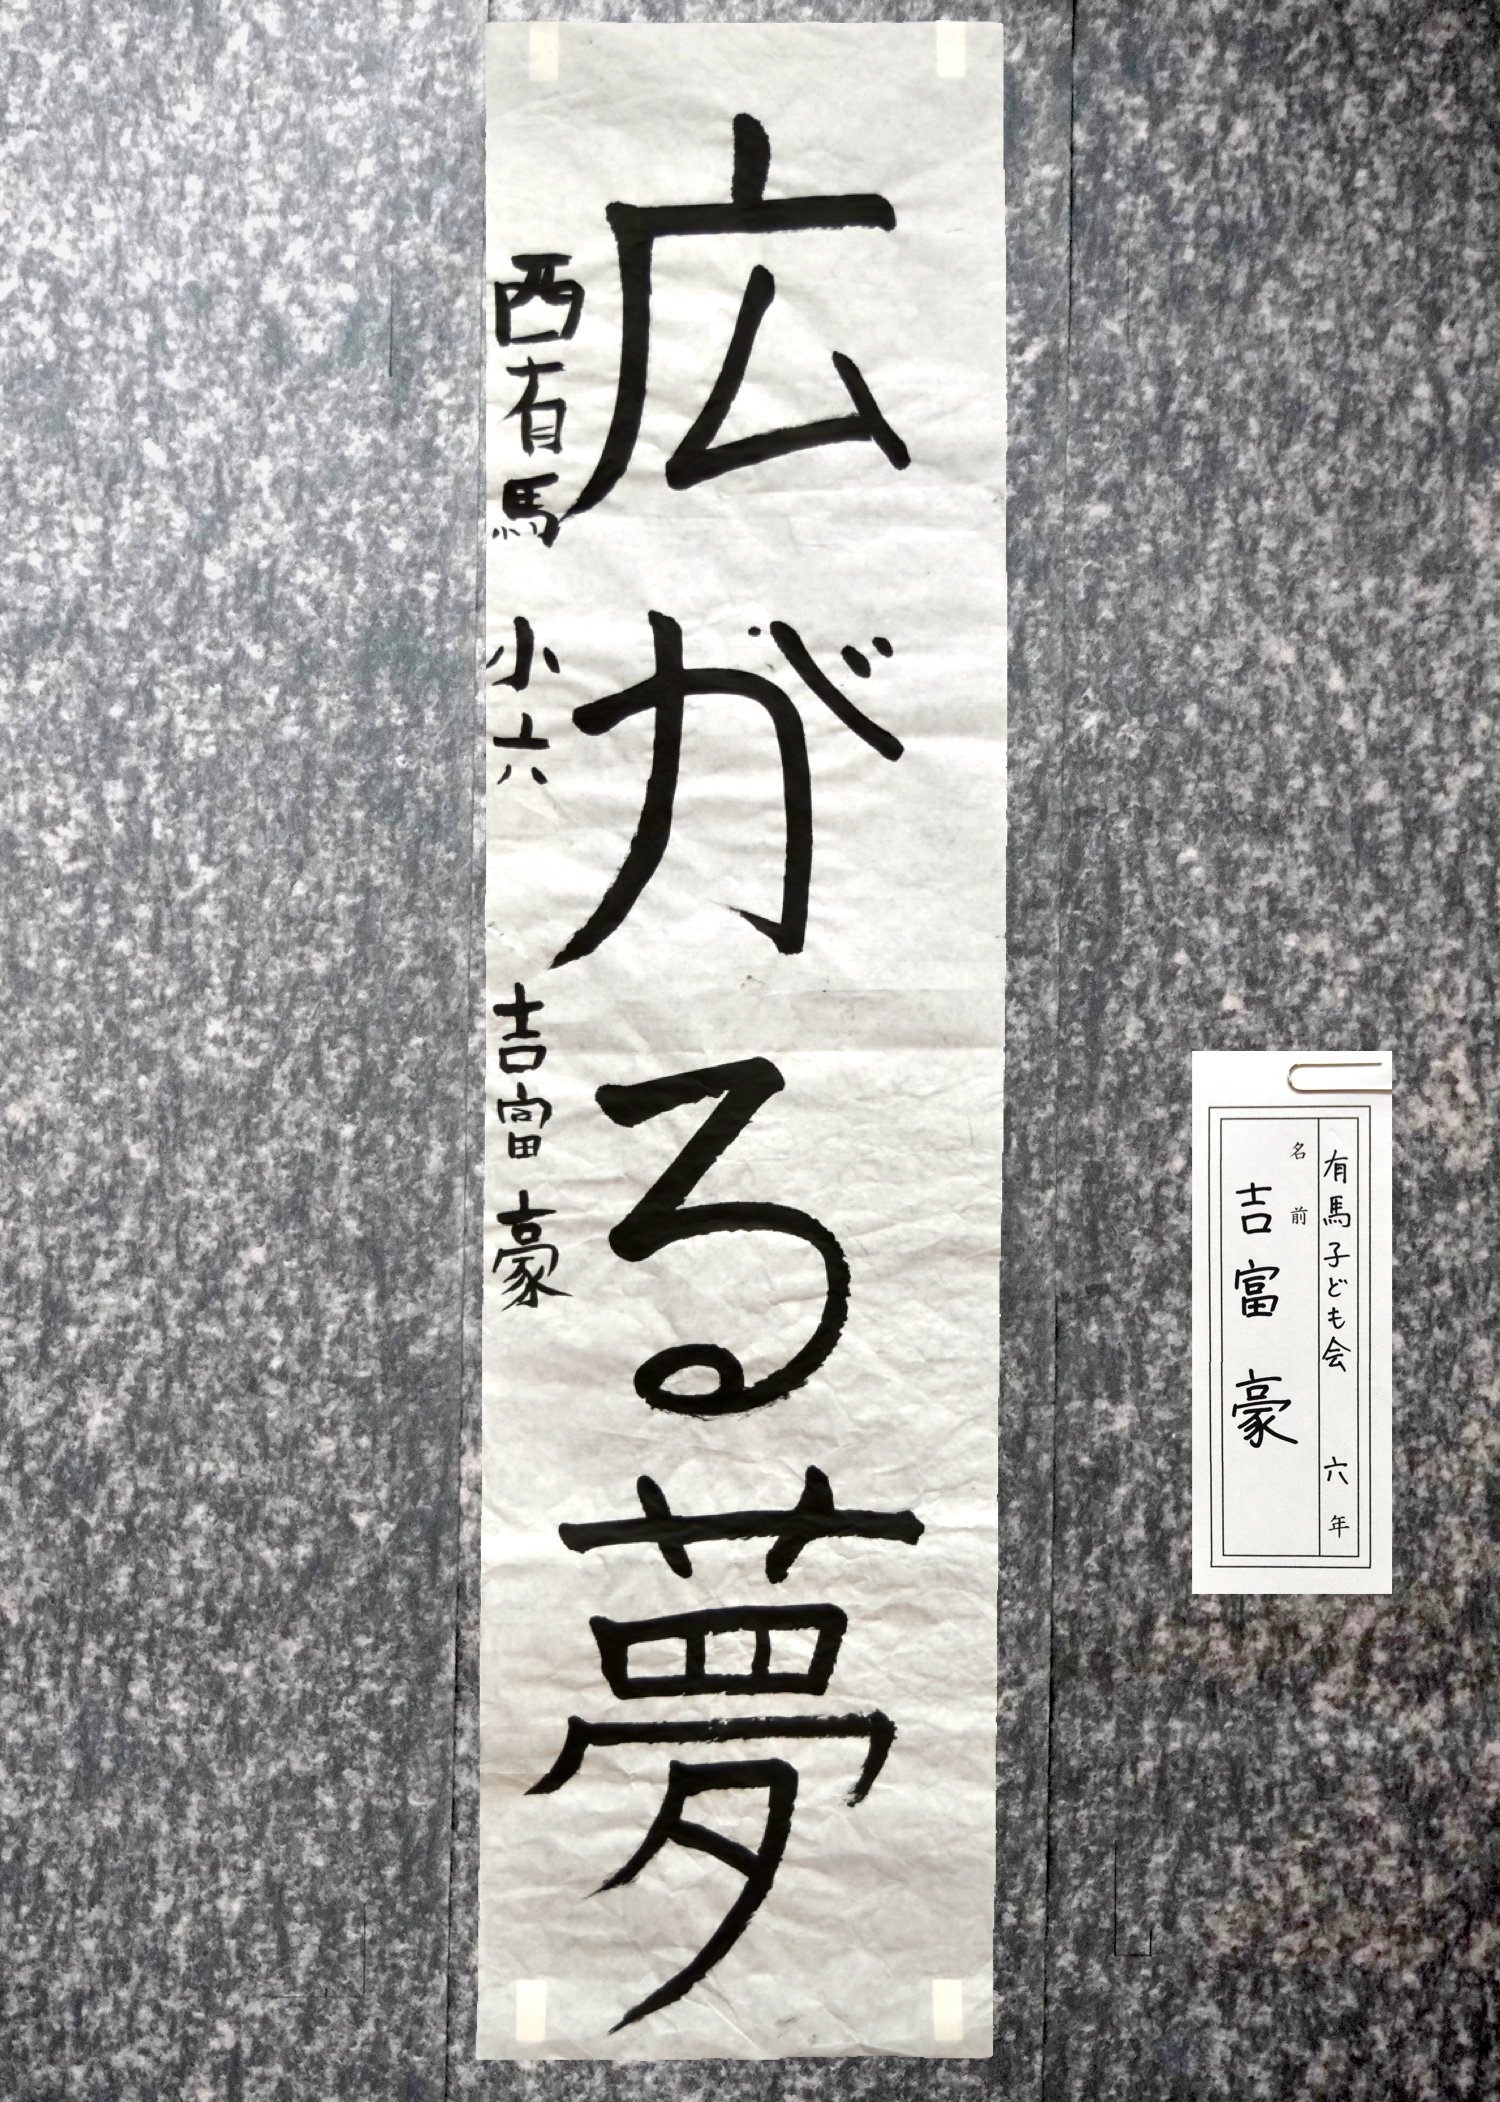 広がる夢
西有馬小六 吉富豪
有馬子ども会 六年
名前
吉富豪